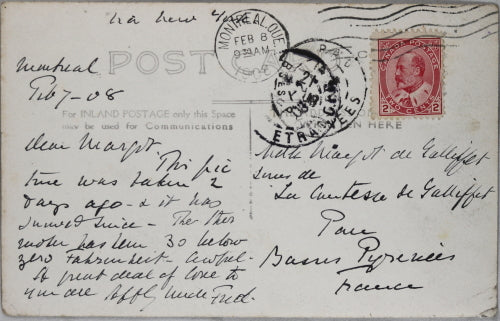 via New York
MONTREAL, QUE.
FEB 8
9 30 AM
POST
CANADA POSTAGE
2 2
TWO CENTS
ETRANGERES
Montreal
Feb 7-08
For INLAND POSTAGE only this Space
may be used for Communications
EN HERE
Dear Margot
This pic
ture was taken 2
days ago - & it has
snowed since - The ther
mometer has been 30 below
zero Fahrenheit - awful.
A great deal of love to
you all Uncle Fred.
Mdlle Margot de Galliffet
La Comtesse de Galliffet
Pau
Basses Pyrenees
France